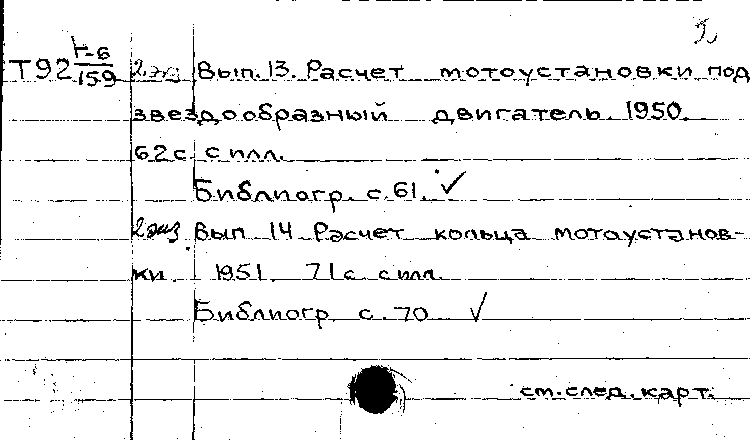 Т92 Г-6/159 2 экз Вып. 13. Расчет мотоустановки под
звездообразный двигатель. 1950.
62 с. с илл.
Библиогр. с. 61. ✓
2 экз Вып. 14. Расчет кольца мотоустанов-
ки 1951. 71 с. с илл.
Библиогр. с. 70 ✓
см. след. карт.